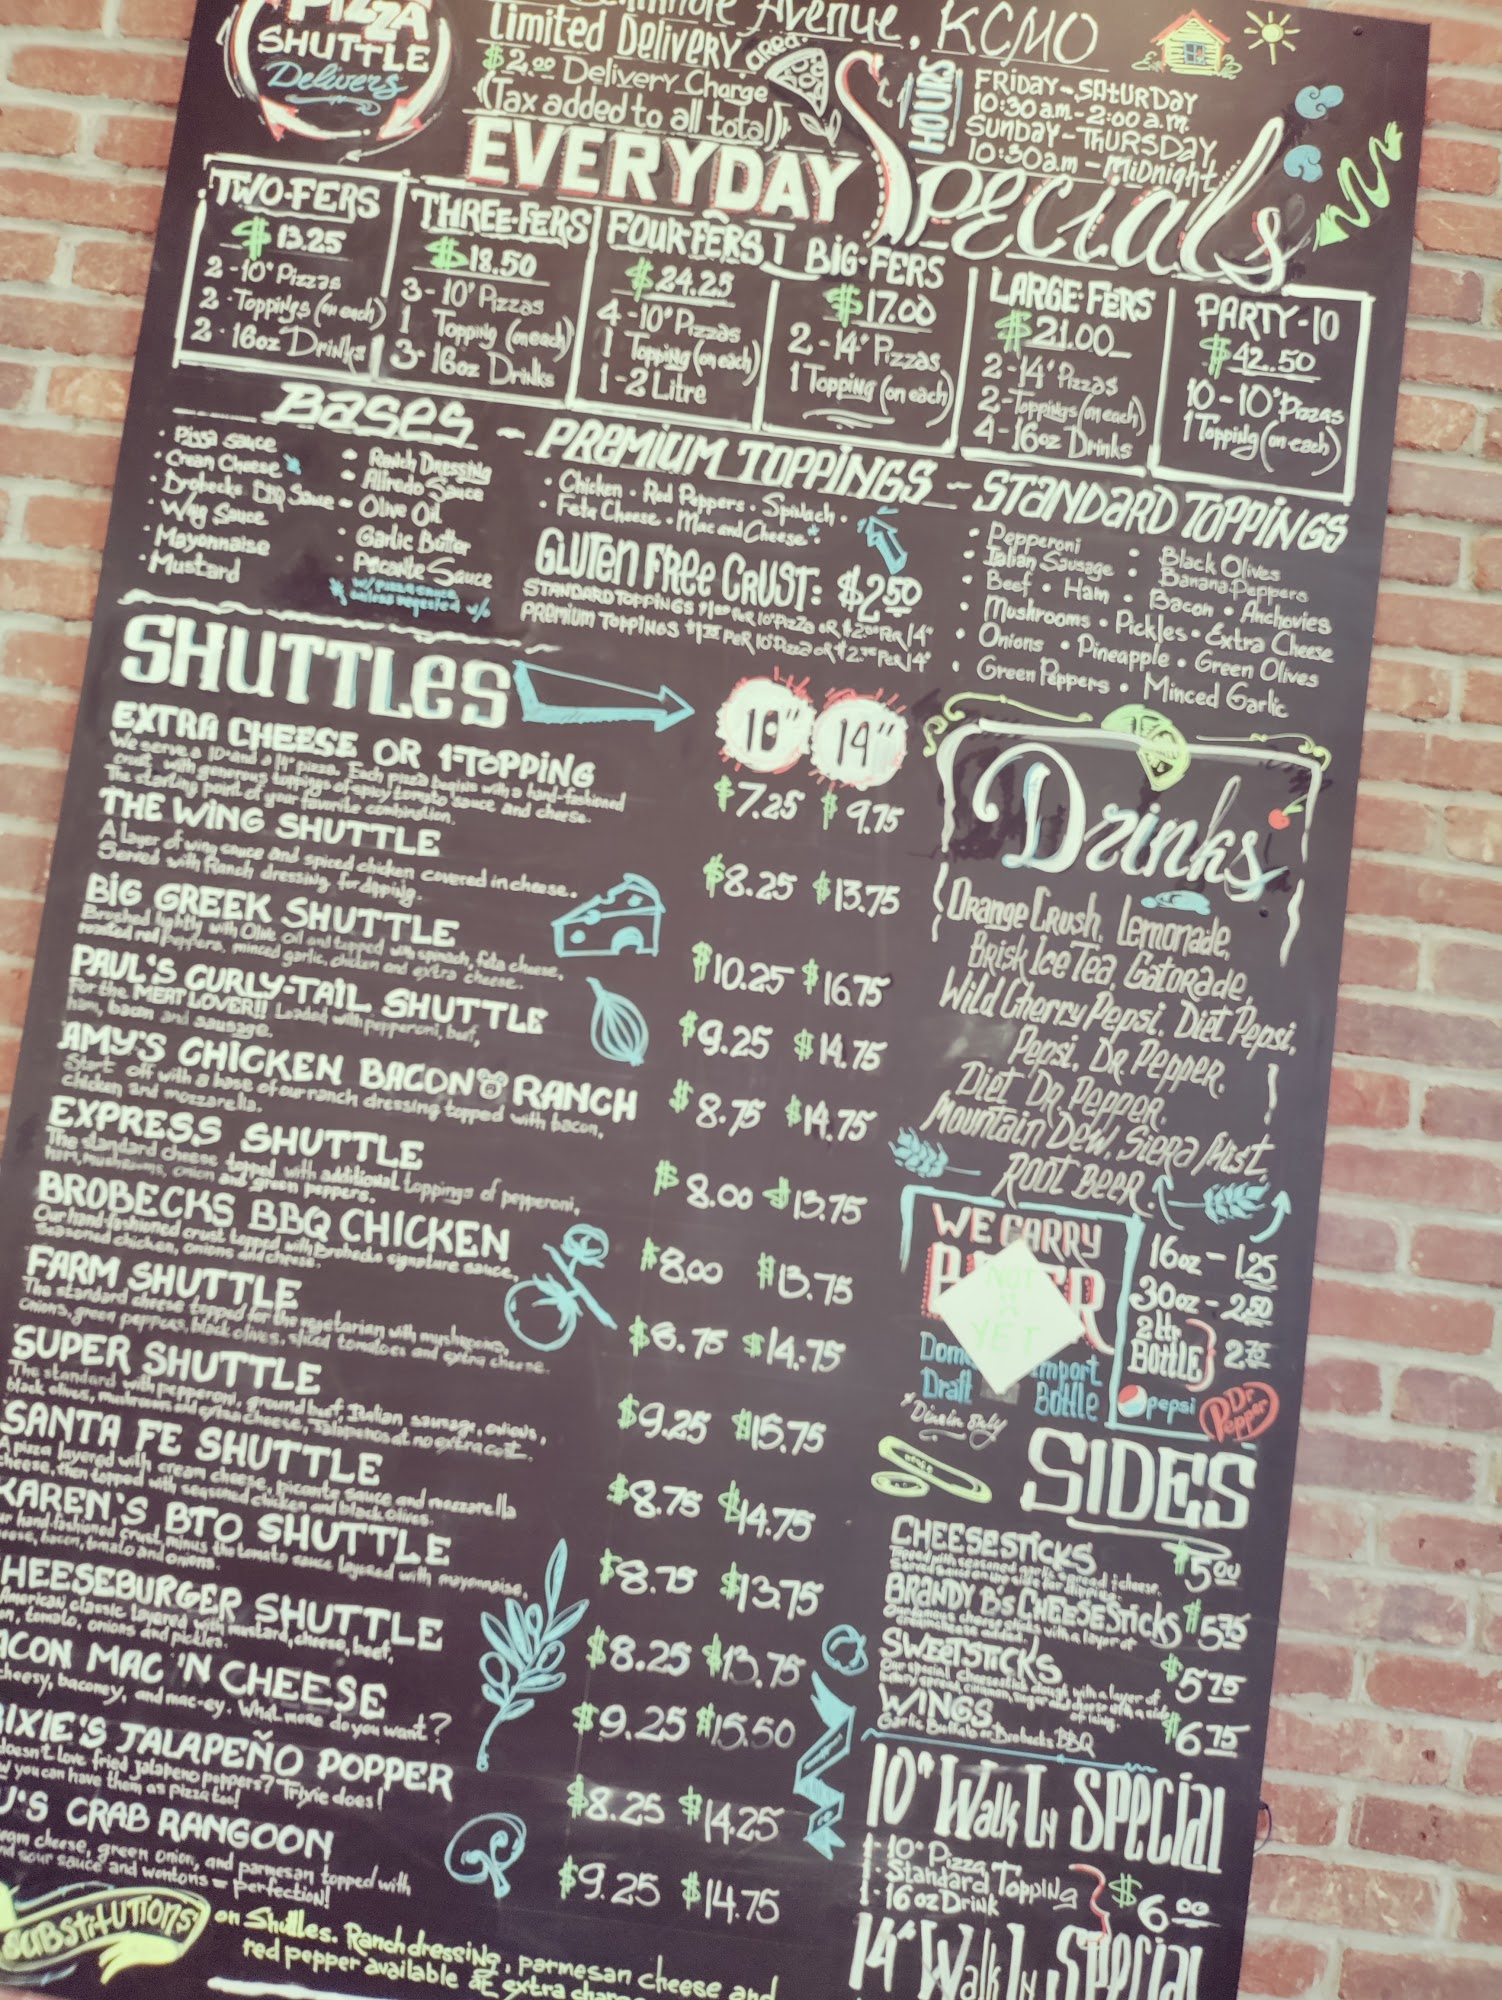 PIZZA
SHUTTLE
Delivers
Avenue, KCMO
Limited Delivery area
$2.00 Delivery Charge
(Tax added to all total)
HOURS
FRIDAY-SATURDAY
10:30 a.m.-2:00 a.m.
SUNDAY-THURSDAY
10:30am-MIDNIGHT
EVERYDAY Specials
TWO-FERS
$13.25
2-10" Pizzas
2-Toppings (on each)
2-16oz Drinks
THREE-FERS
$18.50
3-10" Pizzas
1 Topping (on each)
3-16oz Drinks
FOUR-FERS
$24.25
4-10" Pizzas
1 Topping (on each)
1-2 Litre
BIG-FERS
$17.00
2-14" Pizzas
1 Topping (on each)
LARGE-FERS
$21.00
2-14" Pizzas
2-Toppings (on each)
4-16oz Drinks
PARTY-10
$42.50
10-10" Pizzas
1 Topping (on each)
BASES
• Pizza Sauce
• Cream Cheese
• Brobecks BBQ Sauce
• Wing Sauce
• Mayonnaise
• Mustard
• Ranch Dressing
• Alfredo Sauce
• Olive Oil
• Garlic Butter
• Picante Sauce
PREMIUM TOPPINGS
• Chicken • Red Peppers • Spinach •
• Feta Cheese • Mac and Cheese*
GLUTEN FREE CRUST: $2.50
STANDARD TOPPINGS PER 10" Pizza OR PER 14"
PREMIUM TOPPINGS PER 10" Pizza OR PER 14"
STANDARD TOPPINGS
• Pepperoni • Black Olives
• Italian Sausage • Banana Peppers
• Beef • Ham • Bacon • Anchovies
• Mushrooms • Pickles • Extra Cheese
• Onions • Pineapple • Green Olives
• Green Peppers • Minced Garlic
SHUTTLES
10" 14"
EXTRA CHEESE OR 1-TOPPING
$7.25 $9.75
We serve a 10" and a 14" pizza. Each pizza begins with a hand-fashioned
crust with generous toppings of spicy tomato sauce and cheese.
The starting point of your favorite combination.
THE WING SHUTTLE
$8.25 $13.75
A layer of wing sauce and spiced chicken covered in cheese.
Served with Ranch dressing for dipping.
BIG GREEK SHUTTLE
$10.25 $16.75
Brushed lightly with Olive Oil and topped with spinach, feta cheese,
roasted red peppers, minced garlic, chicken and extra cheese.
PAUL'S CURLY-TAIL SHUTTLE
$9.25 $14.75
For the MEAT LOVER!! Loaded with pepperoni, beef,
ham, bacon and sausage.
AMY'S CHICKEN BACON RANCH
$8.75 $14.75
Start off with a base of our ranch dressing topped with bacon,
chicken and mozzarella.
EXPRESS SHUTTLE
$8.00 $13.75
The standard cheese topped with additional toppings of pepperoni,
ham, mushrooms, onion and green peppers.
BROBECKS BBQ CHICKEN
$8.00 $13.75
Our hand-fashioned crust topped with Brobecks signature sauce,
Seasoned chicken, onions and cheese.
FARM SHUTTLE
$14.75
The standard cheese topped for the vegetarian with mushrooms,
onions, green peppers, black olives, sliced tomatoes and extra cheese.
SUPER SHUTTLE
$9.25 $15.75
The standard with pepperoni, ground beef, Italian sausage, onions,
black olives, mushrooms and extra cheese. Jalapenos at no extra cost.
SANTA FE SHUTTLE
$8.75 $14.75
A pizza layered with cream cheese, picante sauce and mozzarella
cheese, then topped with seasoned chicken and black olives.
KAREN'S BTO SHUTTLE
$8.75 $13.75
hand-fashioned crust, minus the tomato sauce layered with mayonnaise,
cheese, bacon, tomato and onions.
HEESEBURGER SHUTTLE
$8.25 $13.75
American classic layered with mustard, cheese, beef,
tomato, onions and pickles.
ACON MAC 'N CHEESE
$9.25 $15.50
cheesy, baconey, and mac-ey. What more do you want?
IXIE'S JALAPEÑO POPPER
$8.25 $14.25
doesn't love fried jalapeno peppers? Trixie does!
you can have them as pizza too!
U'S CRAB RANGOON
$9.25 $14.75
cheese, green onion, and parmesan topped with
sour sauce and wontons = perfection!
SUBSTITUTIONS on Shuttles. Ranch dressing, parmesan cheese and
red pepper available at extra
Drinks
Orange Crush, Lemonade,
Brisk Ice Tea, Gatorade,
Wild Cherry Pepsi, Diet Pepsi,
Pepsi, Dr. Pepper,
Diet Dr. Pepper,
Mountain Dew, Sierra Mist,
ROOT BEER
16oz - 1.25
30oz - 2.50
2 ltr BOTTLE 2.75
pepsi
Dr Pepper
WE CARRY
NOT
YET
Draft
Import
Bottle
* Dine In Only
SIDES
CHEESESTICKS $5.00
BRANDY B'S CHEESESTICKS $5.75
SWEETSTICKS $5.75
WINGS $6.75
Garlic Buffalo or Brobecks BBQ
10" Walk In Special
1-10" Pizza
1-Standard Topping
1-16oz Drink
$6.00
14" Walk In Special